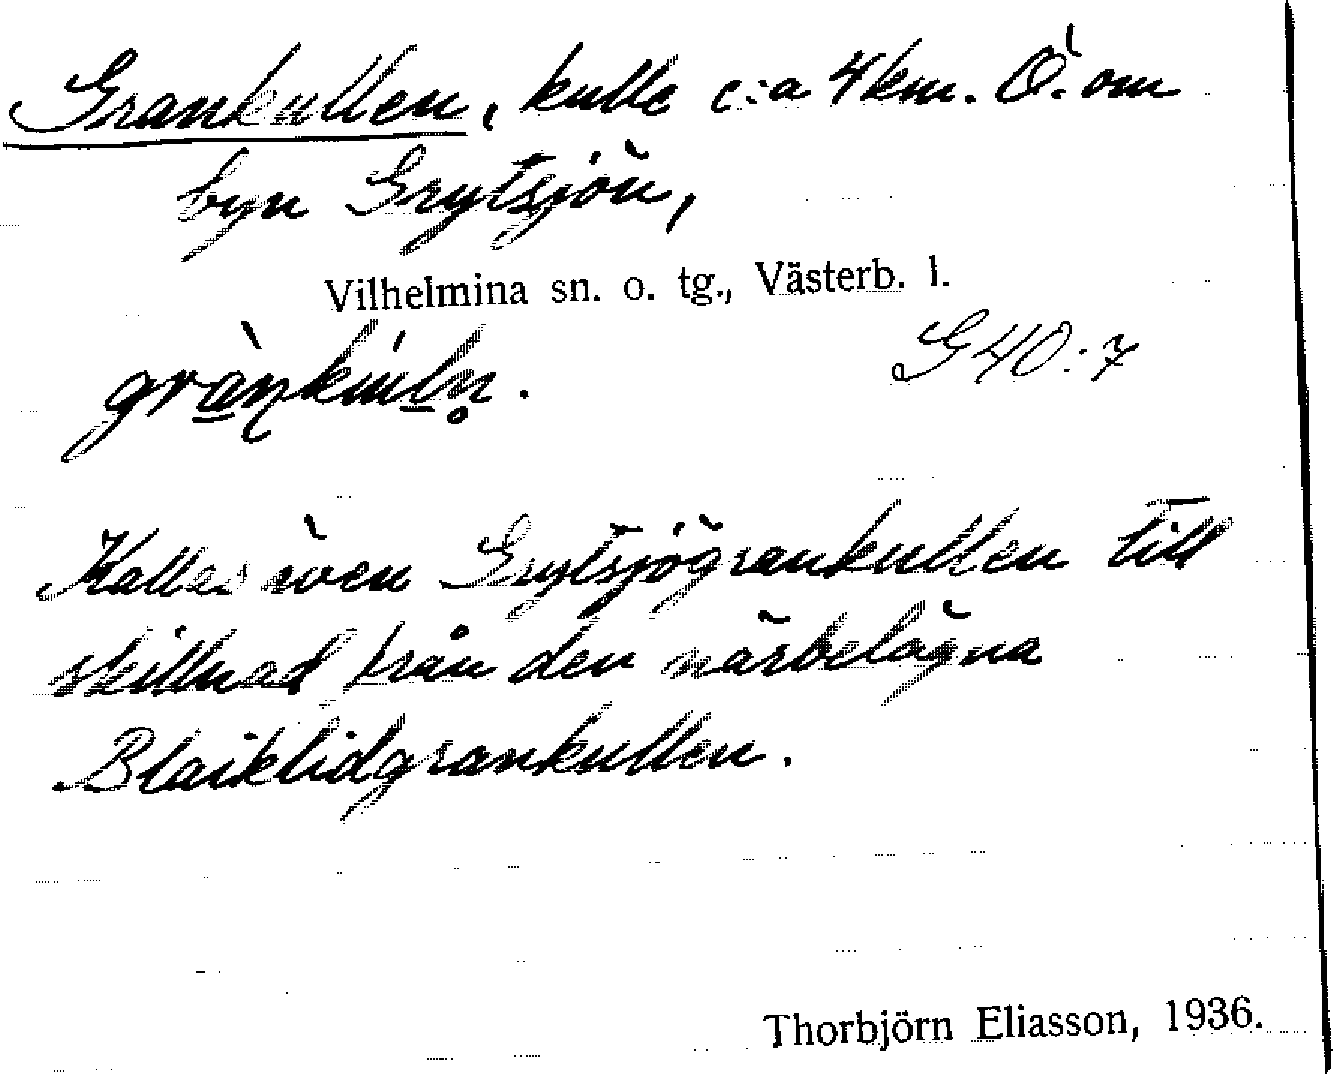 Grankullen, kulle c:a 4 km. Ö. om
byn Grytsjön,
Vilhelmina sn. o. tg., Västerb. l.
G 40:7
Kallas även Grytsjögrankullen till
skillnad från den närbelägna
Blaiklidgrankullen.
Thorbjörn Eliasson, 1936.